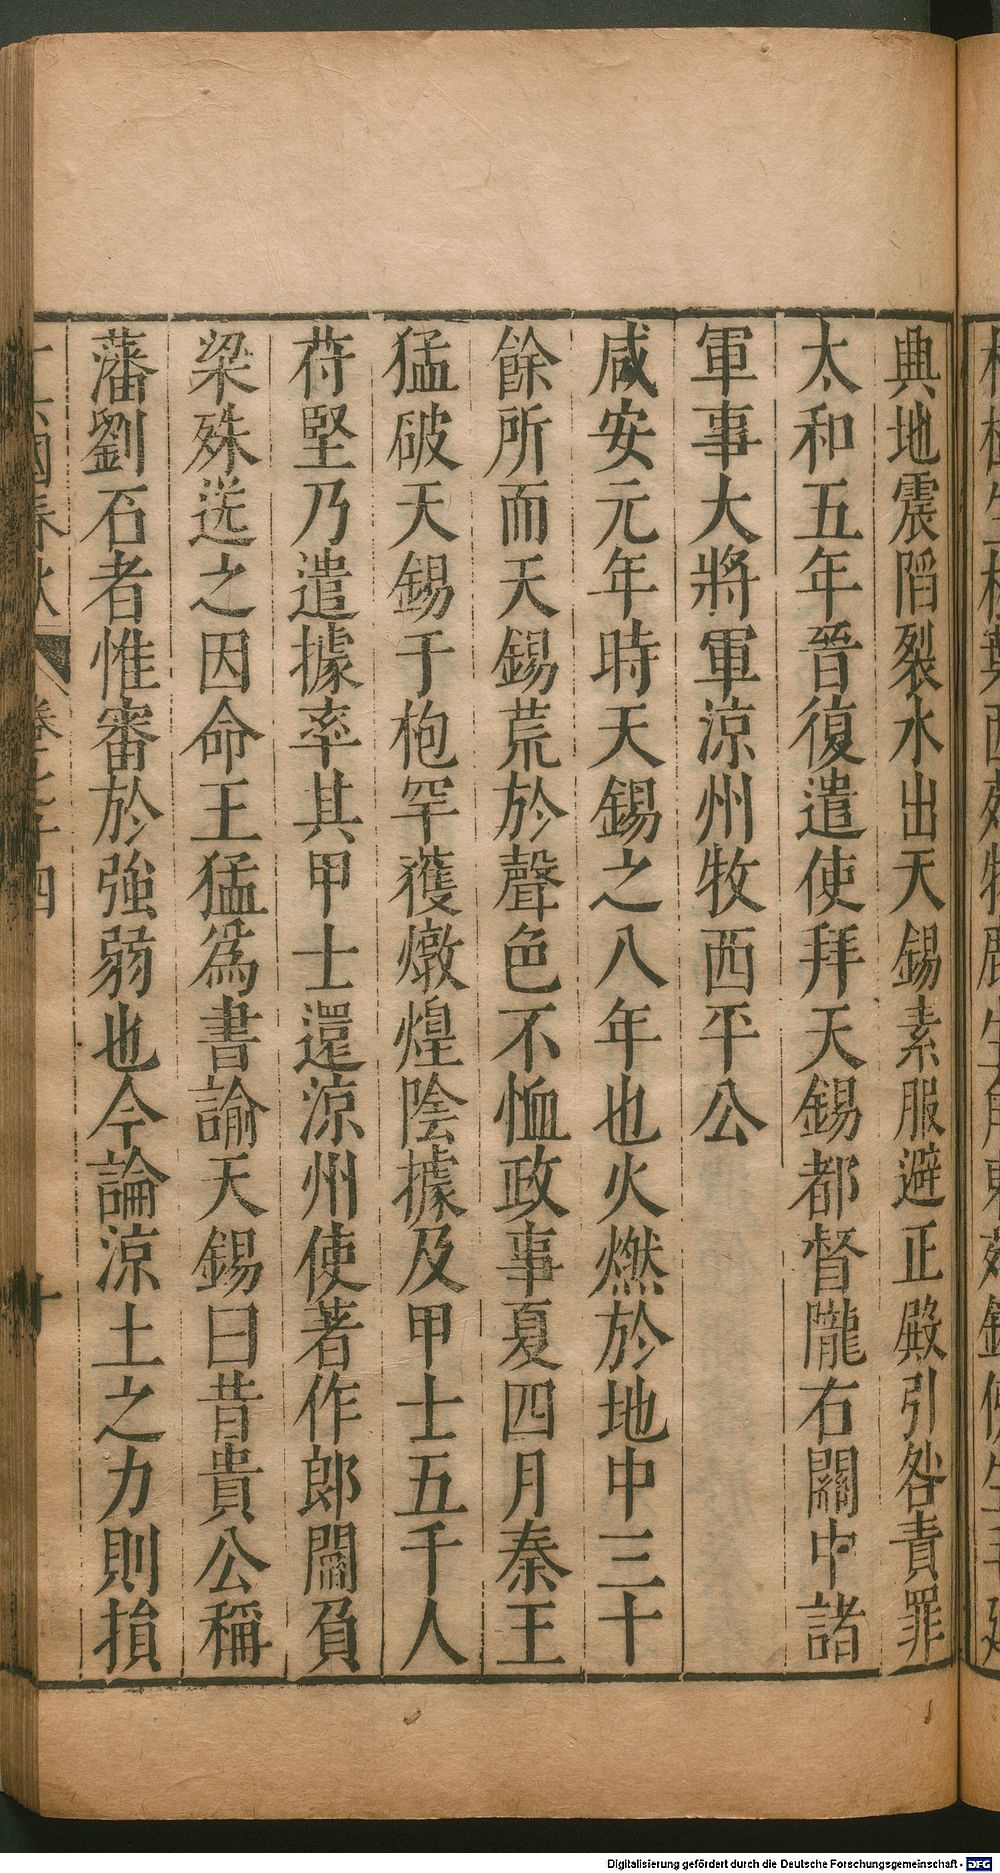 典地震䧟裂水出天錫素服避正殿引咎責罪
太和五年晉復遣使拜天錫都督隴右關中諸
軍事大將軍涼州牧西平公
咸安元年時天錫之八年也火燃於地中三十
餘所而天錫荒於聲色不恤政事夏四月秦王
猛破天錫于枹罕獲燉煌陰據及甲士五千人
苻堅乃遣據率其甲士還涼州使著作郎閻負
梁殊送之因命王猛爲書諭天錫曰昔貴公稱
藩劉石者惟審於強弱也今論涼土之力則損
十六國春秋 卷七十四 十
Digitalisierung gefördert durch die Deutsche Forschungsgemeinschaft - DFG